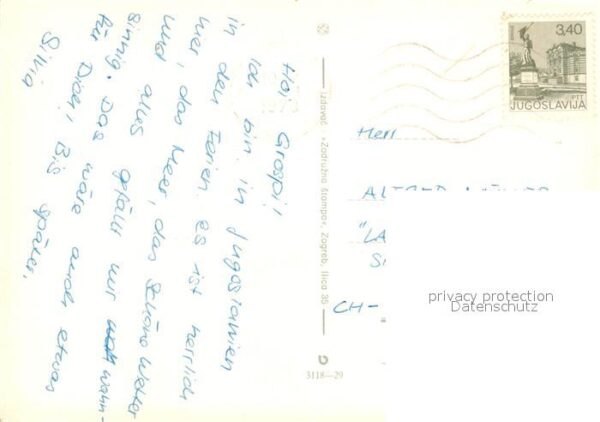 Hoi Grospi!
Ich bin in Jugoslawien
in den Ferien. Es ist herrlich
hier, das Meer, das schöne Wetter
und alles gefällt mir wahn-
sinnig. Das wäre auch etwas
für Dich! Bis später,
Silvia
Izdavač: »Zadružna štampa«, Zagreb, Ilica 35
3118—29
3,40
PTT
JUGOSLAVIJA
Herr
"LA
CH-
privacy protection
Datenschutz